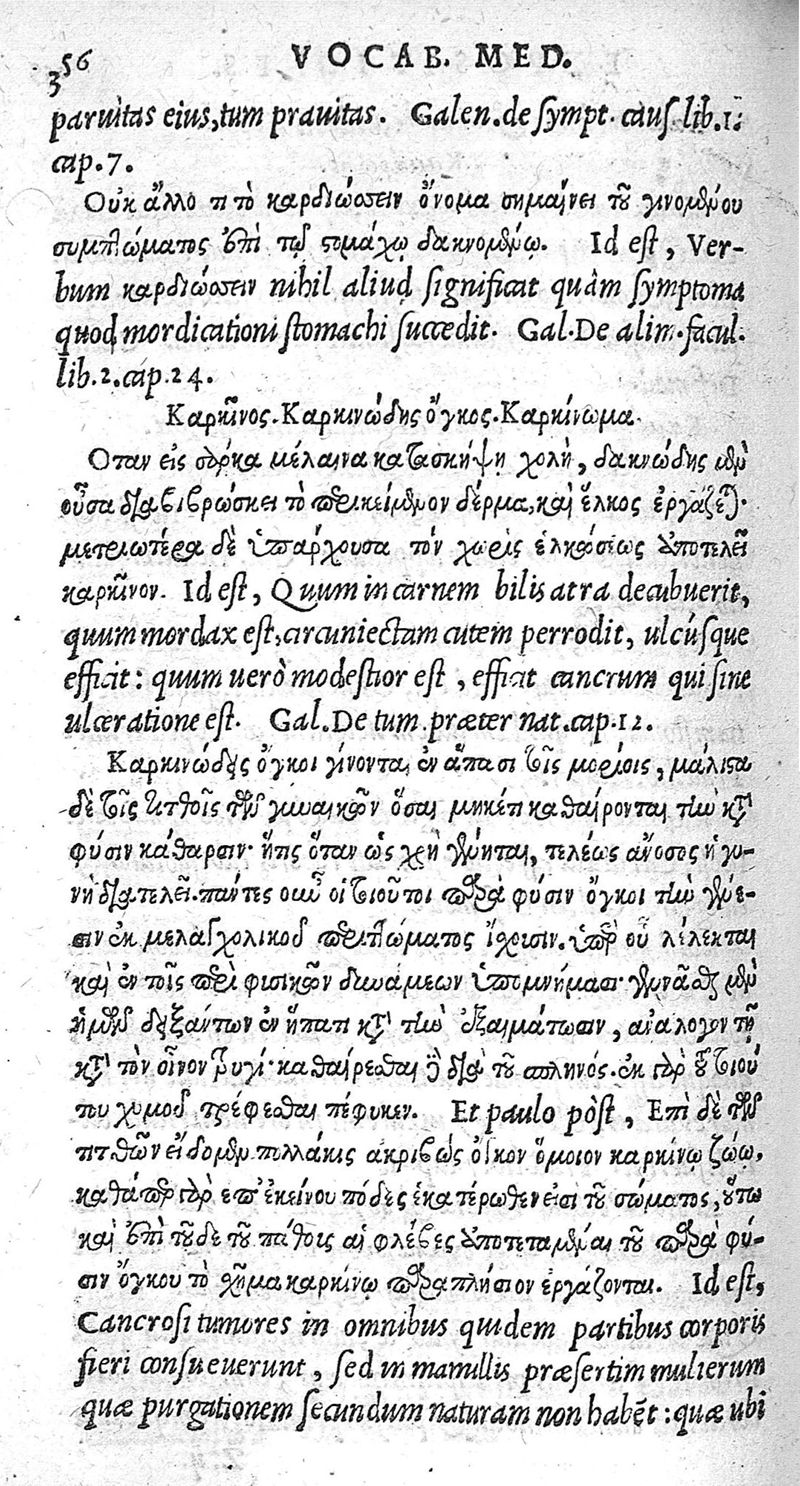 356 VOCAB. MED.
paruitas eius, tum prauitas. Galen. de sympt. caus. lib. 1.
cap. 7.
Οὐκ ἄλλο τι τὸ καρδιώσσειν ὄνομα σημαίνει τοῦ γινομένου
συμπτώματος ἐπὶ τῷ στομάχῳ δακνομένῳ. Id est, Ver-
bum καρδιώσσειν nihil aliud significat quàm symptoma
quod mordicationi stomachi succedit. Gal. De alim. facul.
lib. 2. cap. 24.
Καρκῖνος. Καρκινώδης ὄγκος. Καρκίνωμα.
Οταν εἰς σάρκα μέλαινα κατασκήψῃ χολὴ, δακνώδης μὲν
οὖσα διαβιβρώσκει τὸ περικείμενον δέρμα, καὶ ἕλκος ἐργάζεται·
μετριωτέρα δὲ ὑπάρχουσα τὸν χωρὶς ἑλκώσεως ἀποτελεῖ
καρκῖνον. Id est, Quum in carnem bilis atra decubuerit,
quum mordax est, circuniectam cutem perrodit, ulcúsque
efficit: quum uerò modestior est, efficit cancrum qui sine
ulceratione est. Gal. De tum. præter nat. cap. 12.
Καρκινώδεις ὄγκοι γίνονται ἐν ἅπασι τοῖς μορίοις, μάλιστα
δὲ τοῖς τιτθοῖς τῶν γυναικῶν ὅσαι μηκέτι καθαίρονται τὴν κατὰ
φύσιν κάθαρσιν· ἥτις ὅταν ὡς χρὴ γένηται, τελέως ἄνοσος ἡ γυ-
νὴ διατελεῖ. πάντες οὖν οἱ τοιοῦτοι παρὰ φύσιν ὄγκοι τὴν γένε-
σιν ἐκ μελαγχολικοῦ περιττώματος ἴσχουσιν. ὑπὲρ οὗ λέλεκται
καὶ ἐν τοῖς περὶ φυσικῶν δυνάμεων ὑπομνήμασι· γεννᾶσθαι μὲν
ἡμῶν δειξάντων ἐν ἥπατι κατὰ τὴν ἐξαιμάτωσιν, ἀνάλογον τῇ
κατὰ τὸν οἶνον τρυγί· καθαίρεσθαι δὲ διὰ τοῦ σπληνός. ἐκ γὰρ τοῦ τοιού
του χυμοῦ τρέφεσθαι πέφυκεν. Et paulo pòst, Επὶ δὲ τῶν
τιτθῶν εἴδομεν πολλάκις ἀκριβῶς ὄγκον ὅμοιον καρκίνῳ ζώῳ.
καθάπερ γὰρ ἐπ' ἐκείνου πόδες ἑκατέρωθεν εἰσὶ τοῦ σώματος, οὕτω
καὶ ἐπὶ τοῦδε τοῦ πάθους αἱ φλέβες ἀποτεταμέναι τοῦ παρὰ φύ-
σιν ὄγκου τὸ σχῆμα καρκίνῳ παραπλήσιον ἐργάζονται. Id est,
Cancrosi tumores in omnibus quidem partibus corporis
fieri consueuerunt, sed in mamillis præsertim mulierum
quæ purgationem secundum naturam non habẽt: quæ ubi